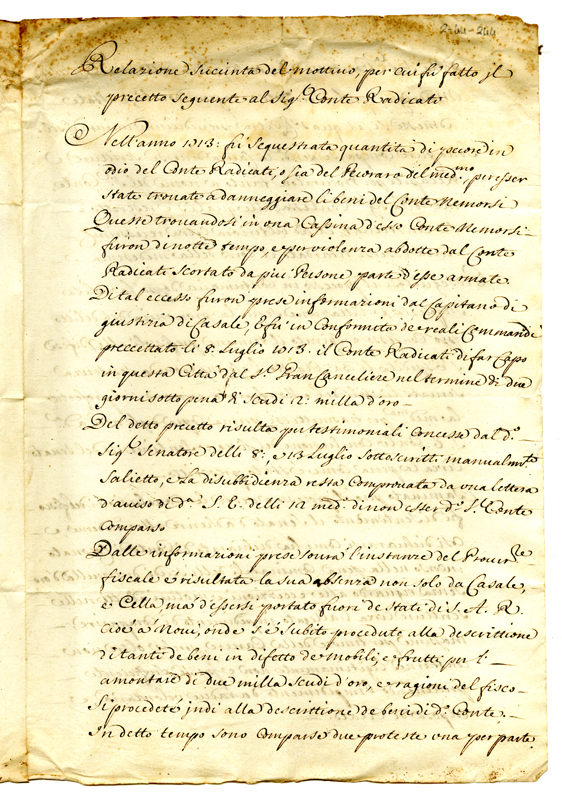 2-44-244
Relazione Succinta del mottivo, per cui fù fatto il
precetto seguente al Sig.r Conte Radicati
Nell'anno 1713: fù sequestrata quantità di pecore in
odio del Conte Radicati, o sia del Pecoraro del med.mo per esser
state trovate a danneggiare li beni del Conte Memorsi
Queste trovandosi in una Cassina d'esso Conte Memorsi
furon di notte tempo, e per violenza abdotte dal Conte
Radicati scortato da più Persone, parte d'esse armate.
Di tal eccesso furon prese informazioni dal Capitano di
giustizia di Casale, E fù in Conformità de reali Commandi
precettato li 8. Luglio 1713. il Conte Radicati di far Capo
in questa Città dal S.r Gran Canceliere nel termine di due
giorni sotto pena di Scudi 2. milla d'oro –
Del detto precetto risulta per testimoniali concesse dal d.o
Sig.r Senatore delli 8. e 13 Luglio sottoscritti manualm.te
Salietto, e La disubbidienza resta Comprovata da una lettera
d'aviso di d.a S. E. delli 12 med.o di non esser d.o S.r Conte
Comparso
Dalle informazioni prese sovra l'instanze del Procur.re
fiscale è risultata la sua absenza non solo da Casale,
e Cella, mà d'essersi portato fuori de Stati di S. A. R.
cioè à Novi, onde s'è subito proceduto alla descrittione
di tanti de beni in difetto de mobili, e frutti, per l'
amontare di due milla Scudi d'oro, e ragioni del fisco
Si procedete indi alla descrittione de beni di d.o Conte. –
In detto tempo sono comparse due proteste una per parte